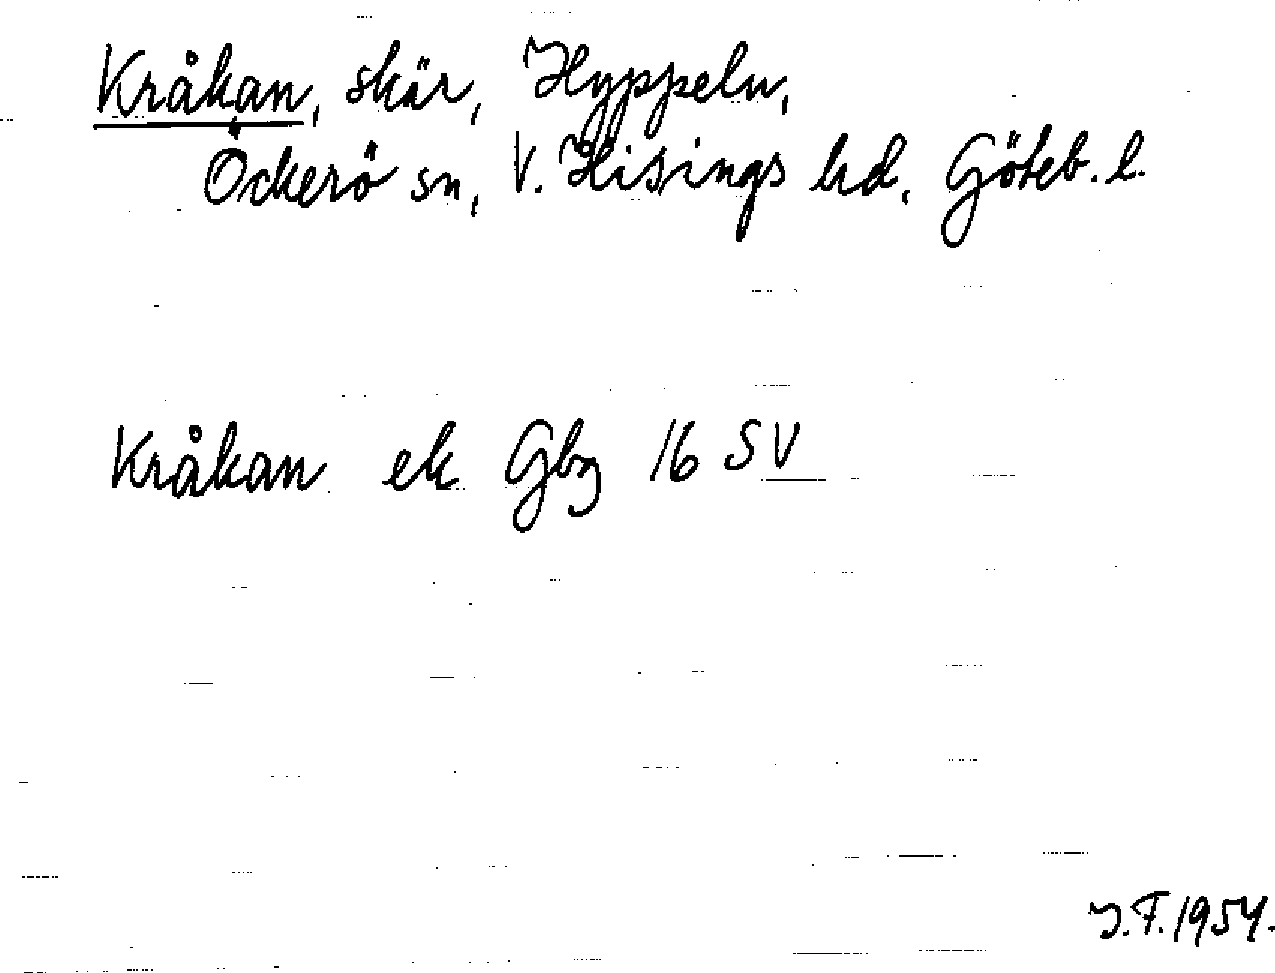 Kråkan, skär, Hyppeln,
Öckerö sn, V. Hisings hd, Göteb. l.
Kråkan ek Gbg 16 SV
J.F. 1954.